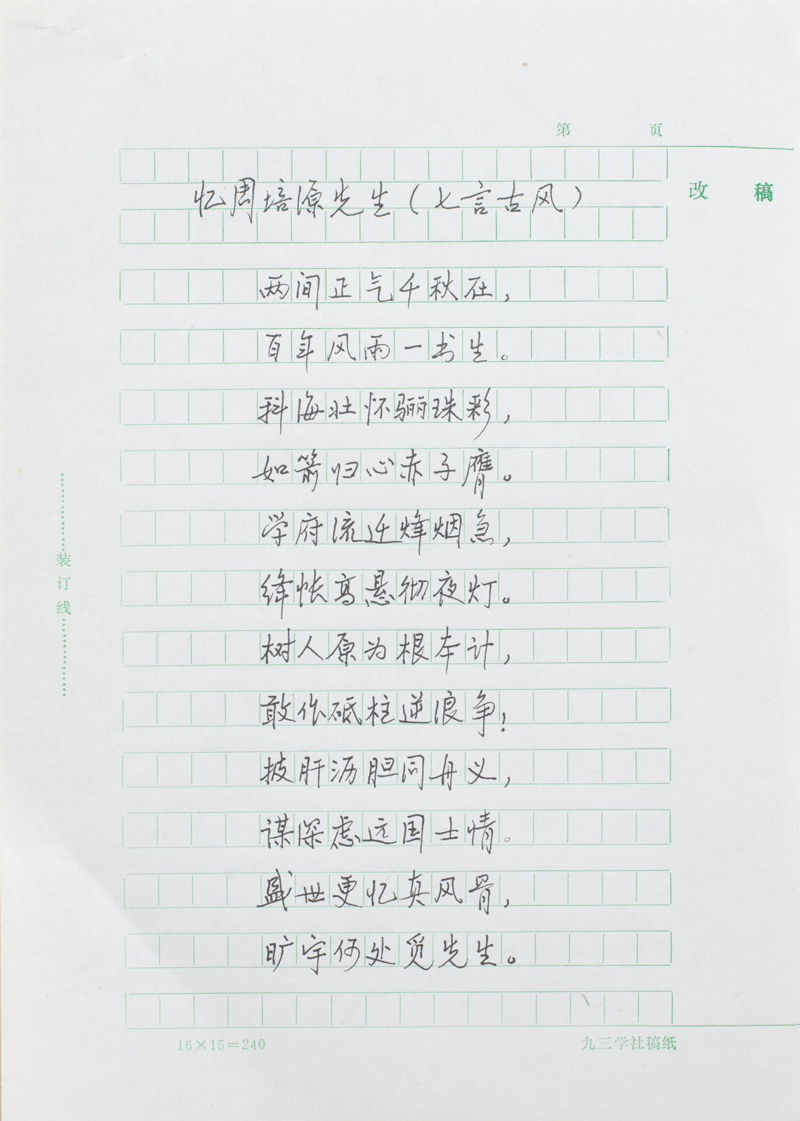 第 页
改 稿
忆周培源先生(七言古风)
两间正气千秋在,
百年风雨一书生。
科海壮怀骊珠彩,
如箭归心赤子膺。
学府流迁烽烟急,
绛帐高悬彻夜灯。
树人原为根本计,
敢作砥柱逆浪争!
披肝沥胆同舟义,
谋深虑远国士情。
盛世更忆真风骨,
旷宇何处觅先生。
装订线
16×15=240
九三学社稿纸